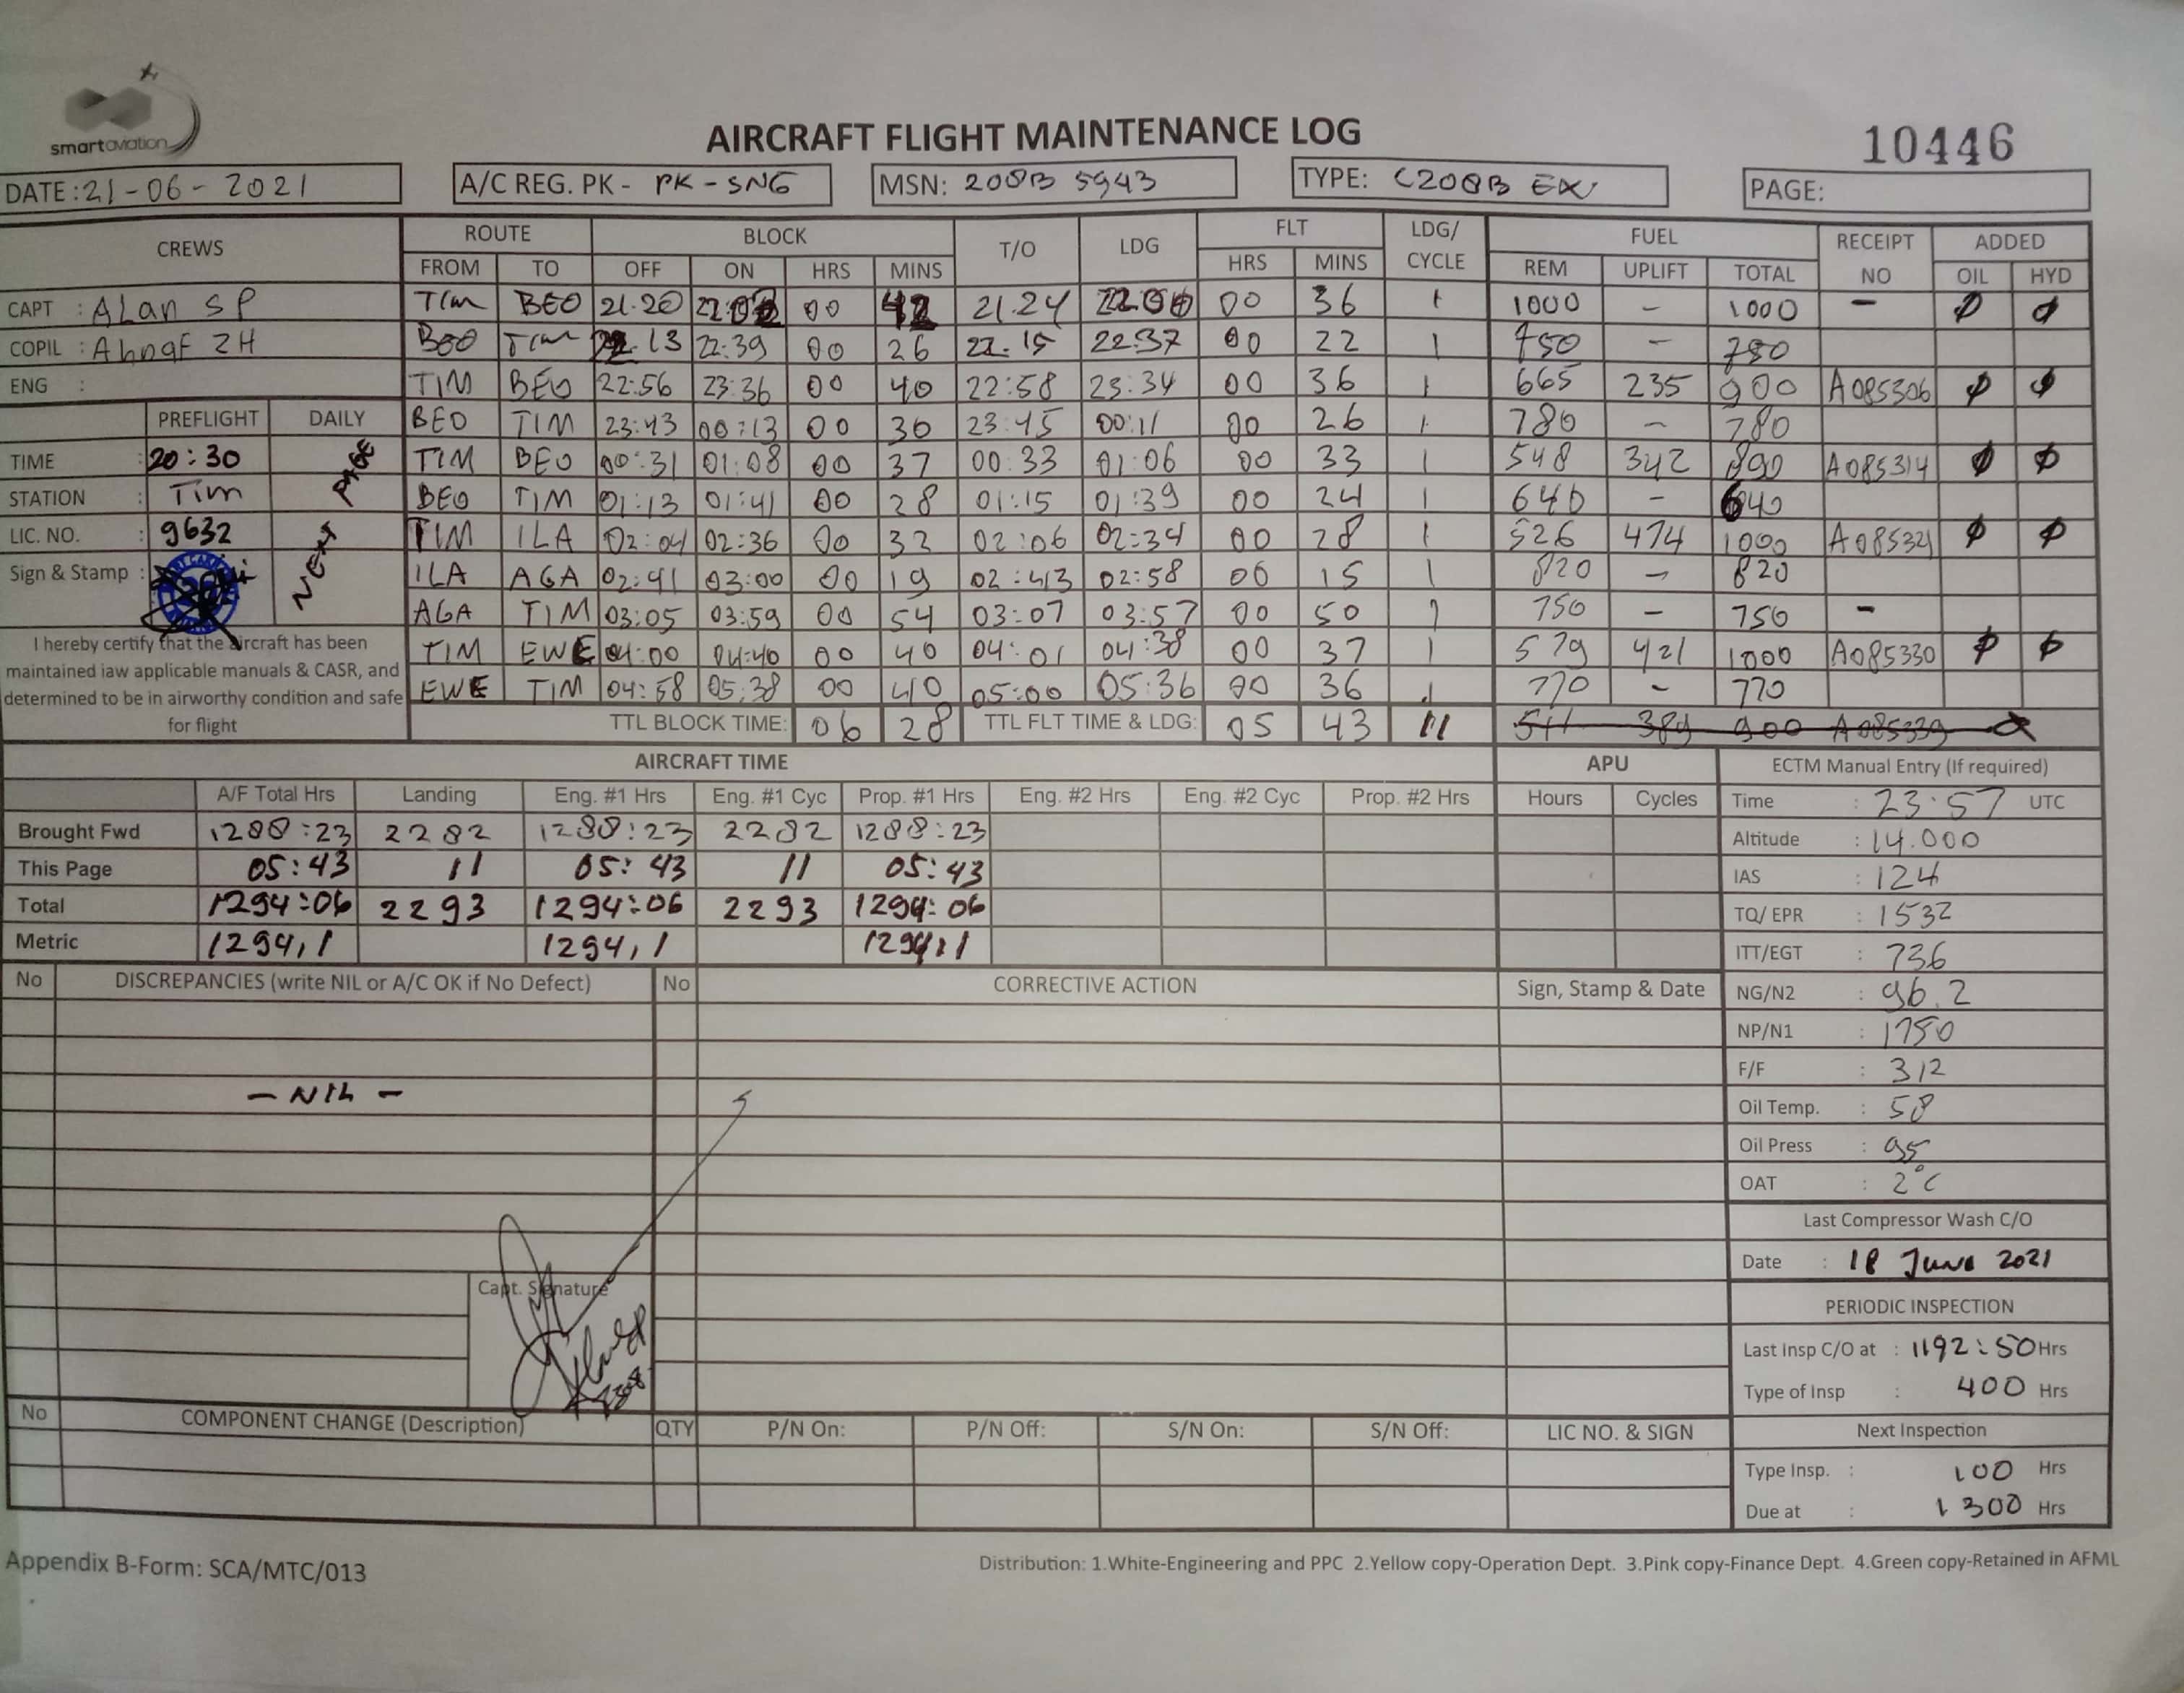 smartaviation
AIRCRAFT FLIGHT MAINTENANCE LOG
10446
DATE: 21-06-2021 A/C REG. PK - PK-SNG MSN: 208B 5943 TYPE: C208B EX PAGE:
CREWS ROUTE BLOCK T/O LDG FLT LDG/ CYCLE FUEL RECEIPT NO ADDED
FROM TO OFF ON HRS MINS HRS MINS REM UPLIFT TOTAL OIL HYD
CAPT : Alan SP TIM BEO 21.20 22:02 00 42 21.24 22:00 00 36 1 1000 - 1000 - Ø Ø
COPIL : ZH BEO TIM 22.13 22:39 00 26 22.15 22:37 00 22 1 750 - 750
ENG : TIM BEO 22:56 23:36 00 40 22:58 23:34 00 36 1 665 235 900 A085306 Ø Ø
PREFLIGHT DAILY BEO TIM 23:43 00:13 00 30 23:45 00:11 00 26 1 780 - 780
TIME : 20:30 TIM BEO 00:31 01:08 00 37 00:33 01:06 00 33 1 548 342 890 A085314 Ø Ø
STATION : Tim BEO TIM 01:13 01:41 00 28 01:15 01:39 00 24 1 640 - 640
LIC. NO. : 9632 TIM ILA 02:04 02:36 00 32 02:06 02:34 00 28 1 526 474 1000 A085321 Ø Ø
Sign & Stamp : NEXT PAGE ILA AGA 02:41 03:00 00 19 02:43 02:58 00 15 1 820 - 820
AGA TIM 03:05 03:59 00 54 03:07 03:57 00 50 1 750 - 750 -
I hereby certify that the aircraft has been TIM EWE 04:00 04:40 00 40 04:01 04:38 00 37 1 579 421 1000 A085330 Ø Ø
maintained iaw applicable manuals & CASR, and
determined to be in airworthy condition and safe EWE TIM 04:58 05:38 00 40 05:00 05:36 00 36 1 770 - 770
for flight TTL BLOCK TIME: 06 28 TTL FLT TIME & LDG: 05 43 11 511 389 900 A085339
AIRCRAFT TIME APU ECTM Manual Entry (If required)
A/F Total Hrs Landing Eng. #1 Hrs Eng. #1 Cyc Prop. #1 Hrs Eng. #2 Hrs Eng. #2 Cyc Prop. #2 Hrs Hours Cycles Time : 23:57 UTC
Brought Fwd 1288:23 2282 1288:23 2282 1288:23 Altitude : 14.000
This Page 05:43 11 05:43 11 05:43 IAS : 124
Total 1294:06 2293 1294:06 2293 1294:06 TQ/ EPR : 1532
Metric 1294,1 1294,1 1294,1 ITT/EGT : 736
No DISCREPANCIES (write NIL or A/C OK if No Defect) No CORRECTIVE ACTION Sign, Stamp & Date NG/N2 : 96.2
NP/N1 : 1750
- NIL - F/F : 312
Oil Temp. : 58
Oil Press : 95
OAT : 2°C
Last Compressor Wash C/O
Capt. Signature Date : 18 June 2021
PERIODIC INSPECTION
Last Insp C/O at : 1192:50 Hrs
Type of Insp : 400 Hrs
No COMPONENT CHANGE (Description) QTY P/N On: P/N Off: S/N On: S/N Off: LIC NO. & SIGN Next Inspection
Type Insp. : 100 Hrs
Due at : 1300 Hrs
Appendix B-Form: SCA/MTC/013 Distribution: 1.White-Engineering and PPC 2.Yellow copy-Operation Dept. 3.Pink copy-Finance Dept. 4.Green copy-Retained in AFML